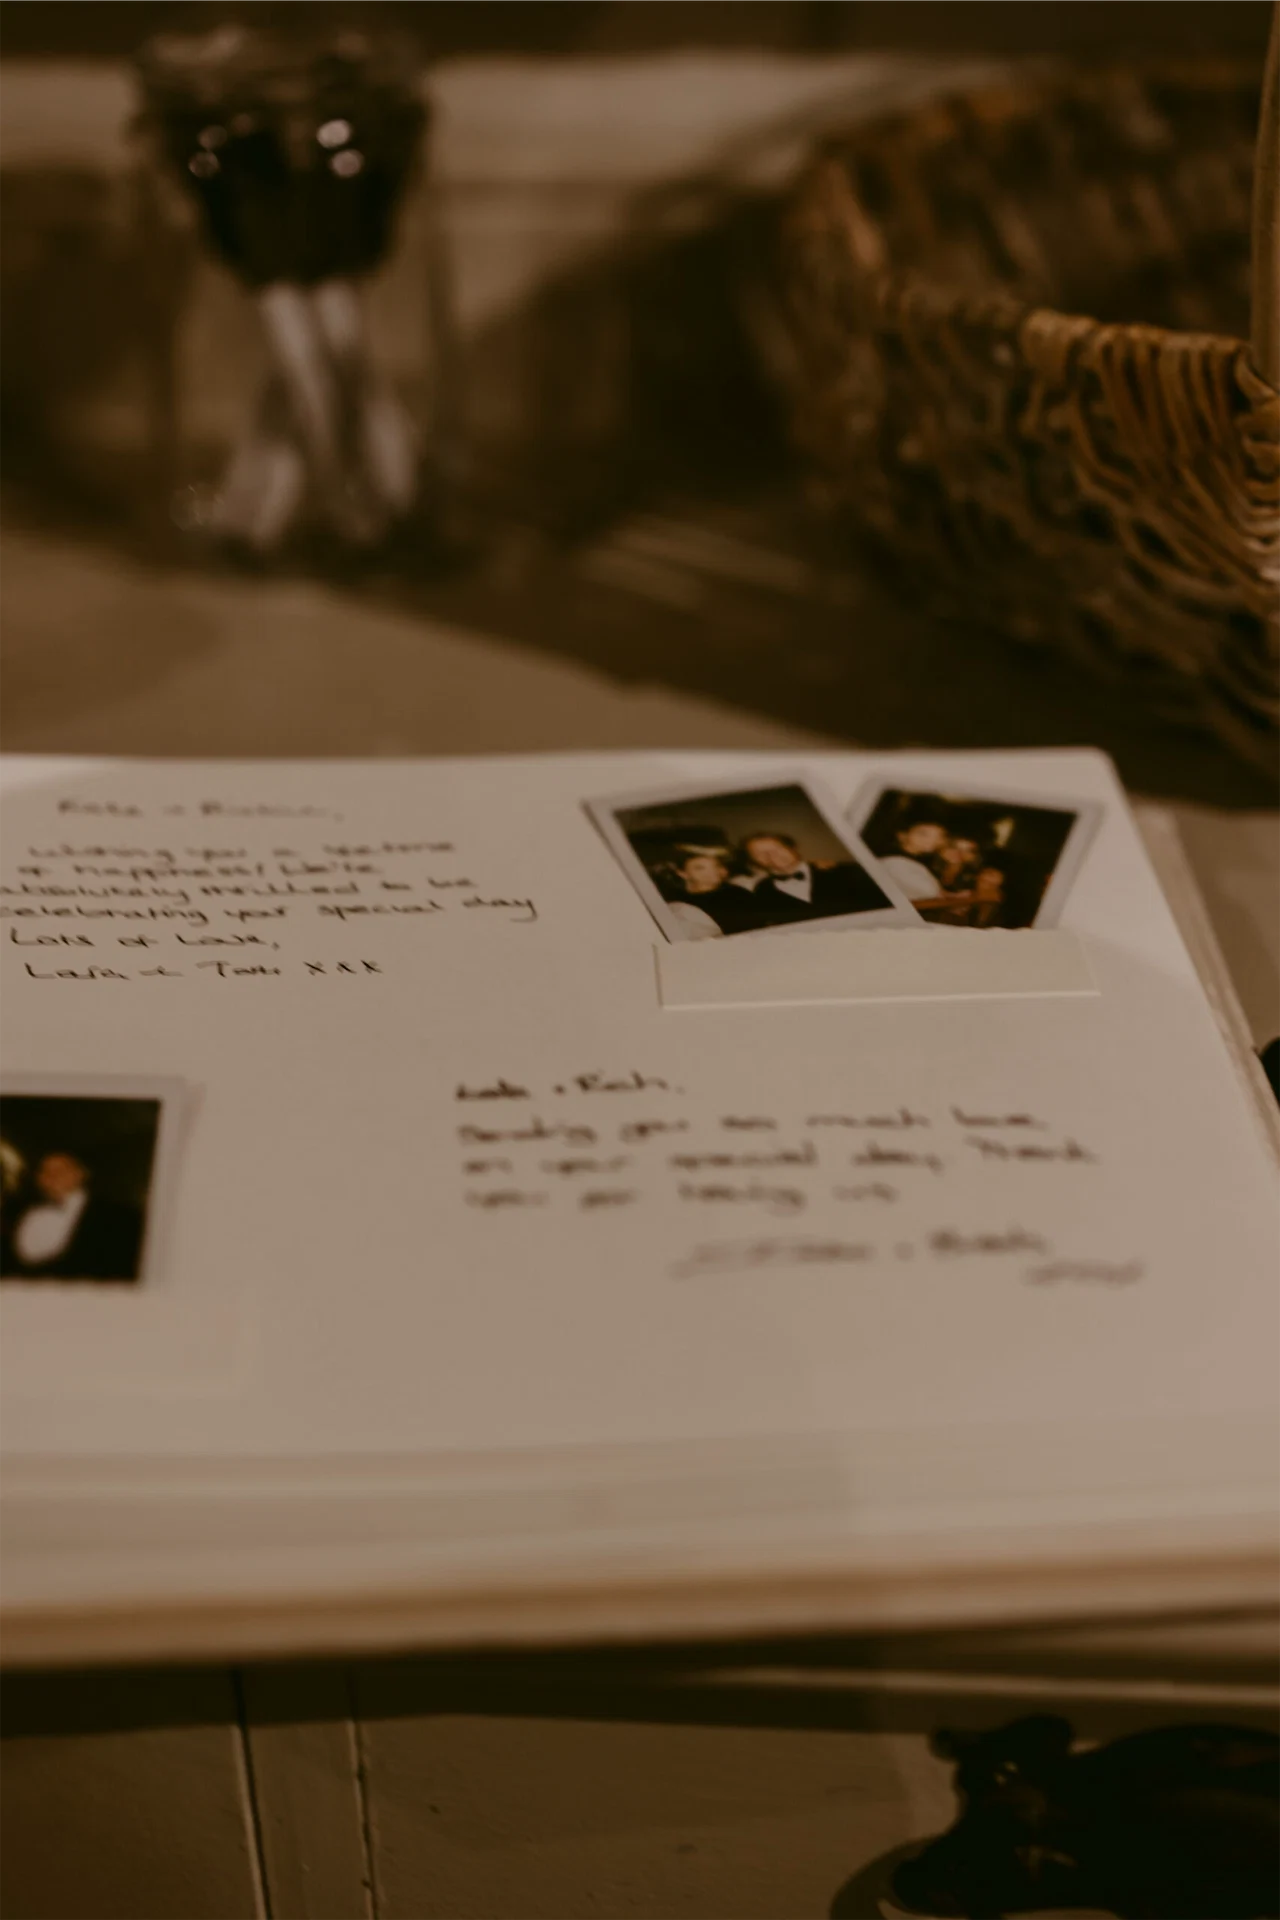 Wishing you a lifetime
of happiness! We're
absolutely thrilled to be
celebrating your special day
Lots of Love,
Lara + Tom xxx
Sending you so much love
on your special day. Thank
you for having us